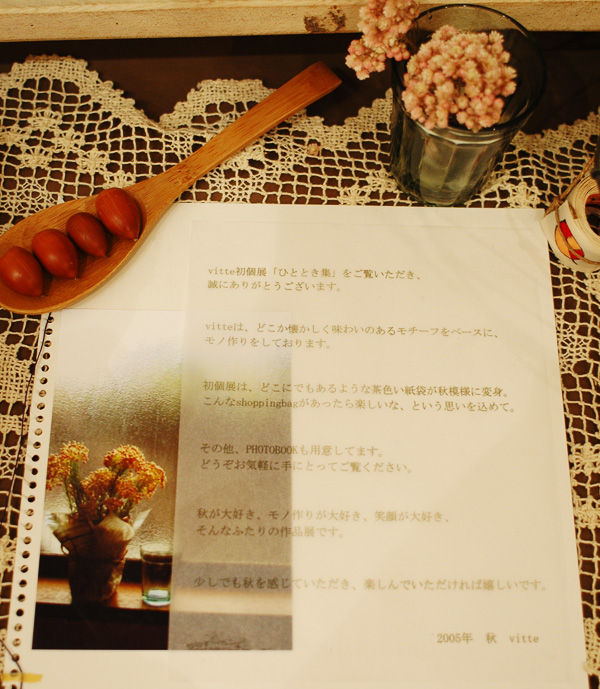 vitte初個展「ひととき集」をご覧いただき、
誠にありがとうございます。
vitteは、どこか懐かしく味わいのあるモチーフをベースに、
モノ作りをしております。
初個展は、どこにでもあるような茶色い紙袋が秋模様に変身。
こんなshoppingbagがあったら楽しいな、という思いを込めて。
その他、PHOTOBOOKも用意してます。
どうぞお気軽に手にとってご覧ください。
秋が大好き、モノ作りが大好き、笑顔が大好き、
そんなふたりの作品展です。
少しでも秋を感じていただき、楽しんでいただければ嬉しいです。
2005年 秋 vitte